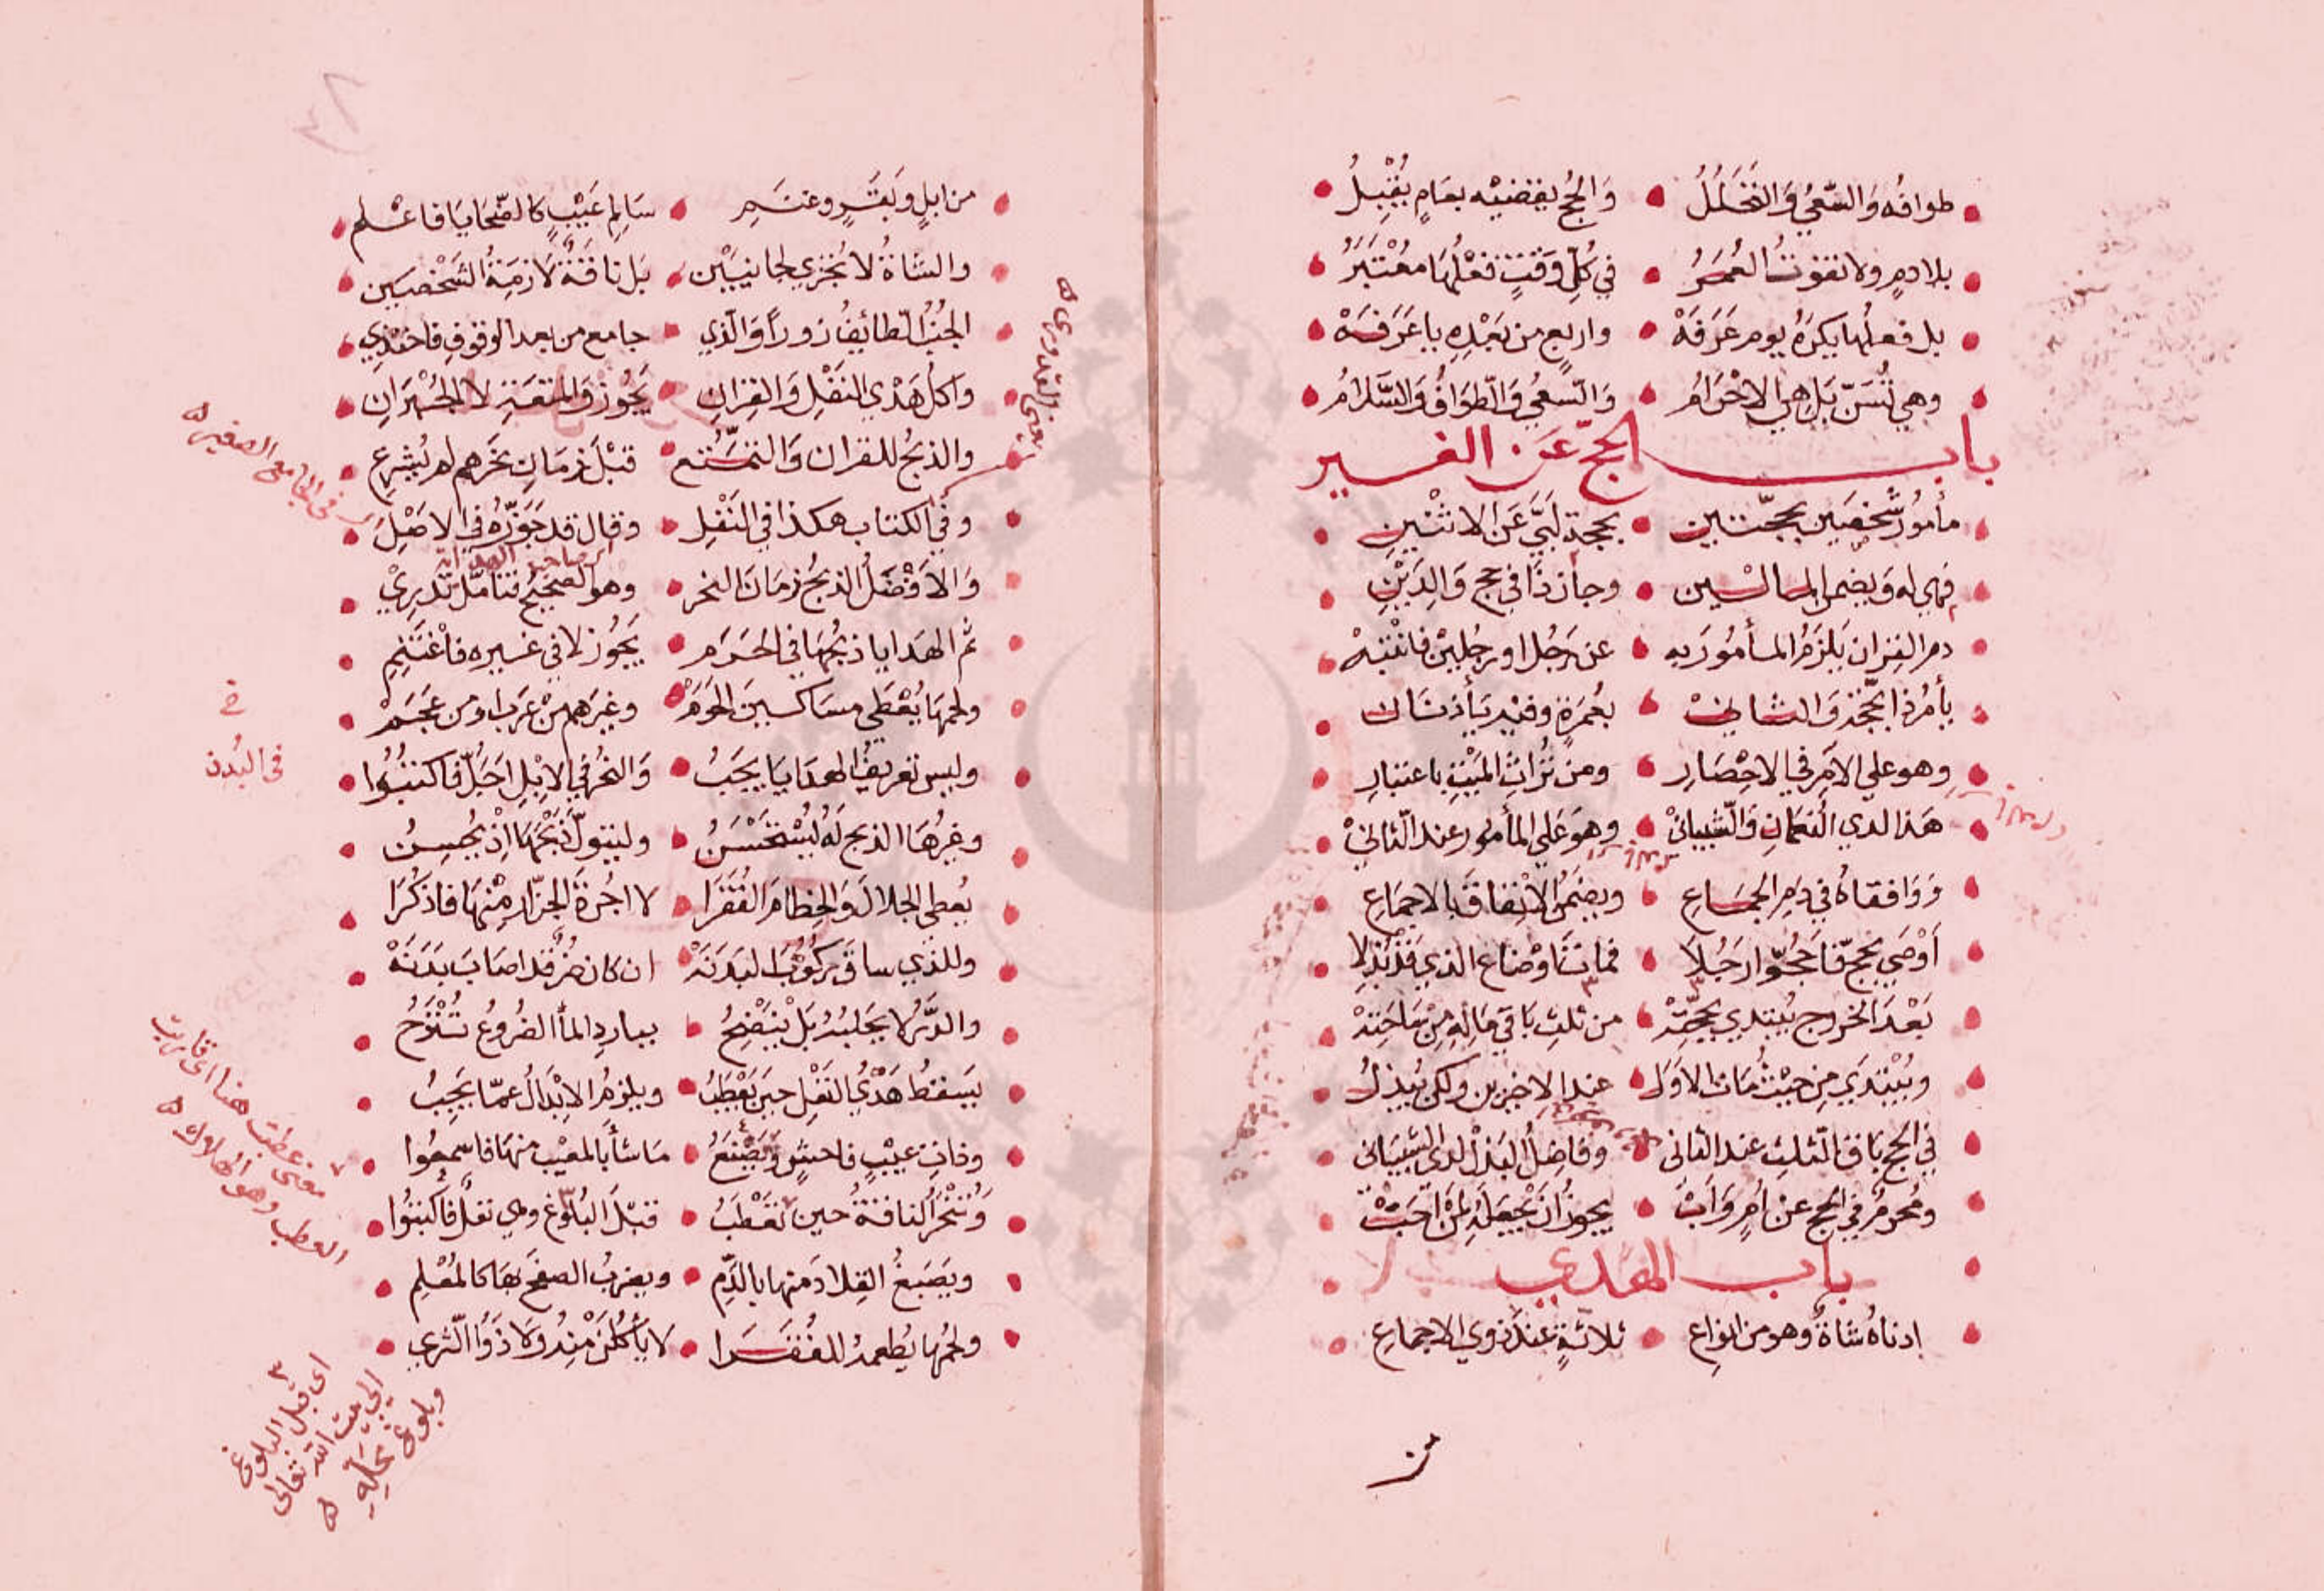 طوافُه وَالسّعيُ وَالتَّحَلُّلُ • وَالحُج يقضيْه بعَامٍ يُقْبِلُ
بلا دمٍ ولا تفوتُ العُمَرُ • في كُلّ وَقتٍ فعْلُهَا معُتَبَرُ
بل فعلُها يكرَهُ يوم عَرَفَهْ • واربعٍ من بَعْدِهِ يا عَرَفَهْ
وهي تُسَنّ بَل هي الاحْرَامُ • وَالسّعيُ وَالطّوَافُ وَالسَّلامُ
باب الحجّ عَن الغير
مأمورُ شَخصَين بحجّتين • بحجة لَبَّى عَن الاثنْينِ
فهي له وَيضمن المالَيْن • وجاز ذَا في حج وَالِدَيْنِ
دم القِران يَلزَمُ المأمُورَ به • عن رَجُل او رجُلين فانْتبهْ
يأمُرُ ذا بحَجّةٍ وَالثاني • بعُمرَةٍ وفيْه يَأذنَان
وهو علي الآمِر في الاحِصَارِ • ومن تُرَاثِ الميْتِ باعتبارِ
هَذا لدي النُّعمَانِ وَالشّيبانيْ • وهوَ عَلي المأمور عند الثّانيْ
وَوَافقاهُ في دَمِ الجمَاعِ • ويضمَنُ الاِنْفاقَ بالاجمَاعِ
أوْصَي بحَجّ فَاحَجُّوا رَجُلاَ • فماتَ اَوْ ضاع الذي قَدْ بُذِلا
بَعْدَ الخروج يُبتدي بحجَّتِهْ • من ثلثِ بَاقي مَالِهِ مِنْ سَاحَتِهْ
ويُبْتَدَي مِن حيْثُ مَات الاوّل • عند الاخيرين ولكن يُبذلُ
في الحَج بَاقي الثّلثِ عند الثاني • وفاضِلُ البَذْل لدي الشّيبَاني
ومُحرمٌ في الحَج عنْ اُمٍ وَاَبْ • يجوزُ اَن يَجْعَلَهُ لِمَنْ اَحَبْ
باب الهَدي
ادناهُ شاةٌ وهو من انواعِ • ثلاثةٍ عندَ ذوي الاجماعِ
من
٤٨
من ابلٍ وَبَقَرٍ وغنَمِ • سَالِمِ عَيْبٍ كالضّحَايَا فاعْلمِ
والشّاةُ لا تُجزي لجانيَيْن • بَل ناقَةٌ لازمةُ الشّخصَين
الجُنُبُ الطائِفُ زوراً وَالّذي • جامع من بعد الوقوفِ فاحتذِي
وَاكلُ هَدْي النفْلِ وَالقِرانِ • يَجُوزُ وَالمتعَةِ لا الجُبْرَانِ
والذبحُ للقران وَالتمَتُّع • قبْلَ زمَانِ نحَرهم لم يُشرعِ
وفي الكتاب هكذا في النّفْل • وقال قد جَوّزَهُ في الاَصْلِ
صاحب الهداية
وَالاَفْضَلُ الذبحُ زمَانَ النحر • وهو الصحيحُ فتأمّل تدرِيْ
ثم الهَدايا ذبحُهَا في الحَرَم • يَجُوز لا في غيره فاغْتَنِمِ
ولحمهَا يُعْطَي مسَاكينَ الحَرَمْ • وغيَرهم منْ عَرَب او من عَجَمْ
وليس تعريفُ الهدَايَا يجبُ • وَالنحرُ في الابْلِ اجَلُّ فاكتبُوا
وغيرُهَا الذبح لَهُ يُسْتحْسَنُ • وليتولّ ذَبْحَهَا اِذْ يُحسِنُ
يُعطي الجلالَ وَالخِطَامَ الفُقَرَا • لا اجُرةَ الجزّار مِنْهَا فاذكُرَا
وللذي ساقَ ركُوُبُ البَدَنَهْ • ان كان ضُرٌّ قد اصَابَ بَدَنَهْ
والدَّرُّ لا يحَلبُهُ بَل يَنْضِحُ • بباردِ المأ الضُروُعَ تُنْزَحُ
يَسقطُ هَدْيُ النَفْلِ حينَ يَعْطَبُ • ويلزمُ الابْدَالُ عمّا يَجِبُ
وذاتِ عيْبٍ فاحشٍ وَيصْنَعُ • مَا شأ بالمعيْب منهَا فاسمعُوا
وَتُنْحَرُ الناقةُ حين تَعْطَبُ • قبْلَ البُلوغ وهي نفلٌ فاكتبُوا
ويَصبغُ القِلادَ منها بالدَّمِ • ويضربُ الصفحَ بهَا كالمُعْلِمِ
ولحمُها يُطعمهُ للفُقَرَا • لا يأكُلَنْ مِنْهُ وَلا ذَوُوا الثّري
اعني القدوري ه
في الجامع الصغير ه
في البُدن
معنى عطبت هنا اى قاربت
العطب وهو الهلاك ه
اى قبل البلوغ
الى بيت الله تعالى
وبلوغ محَلِّهِ ه